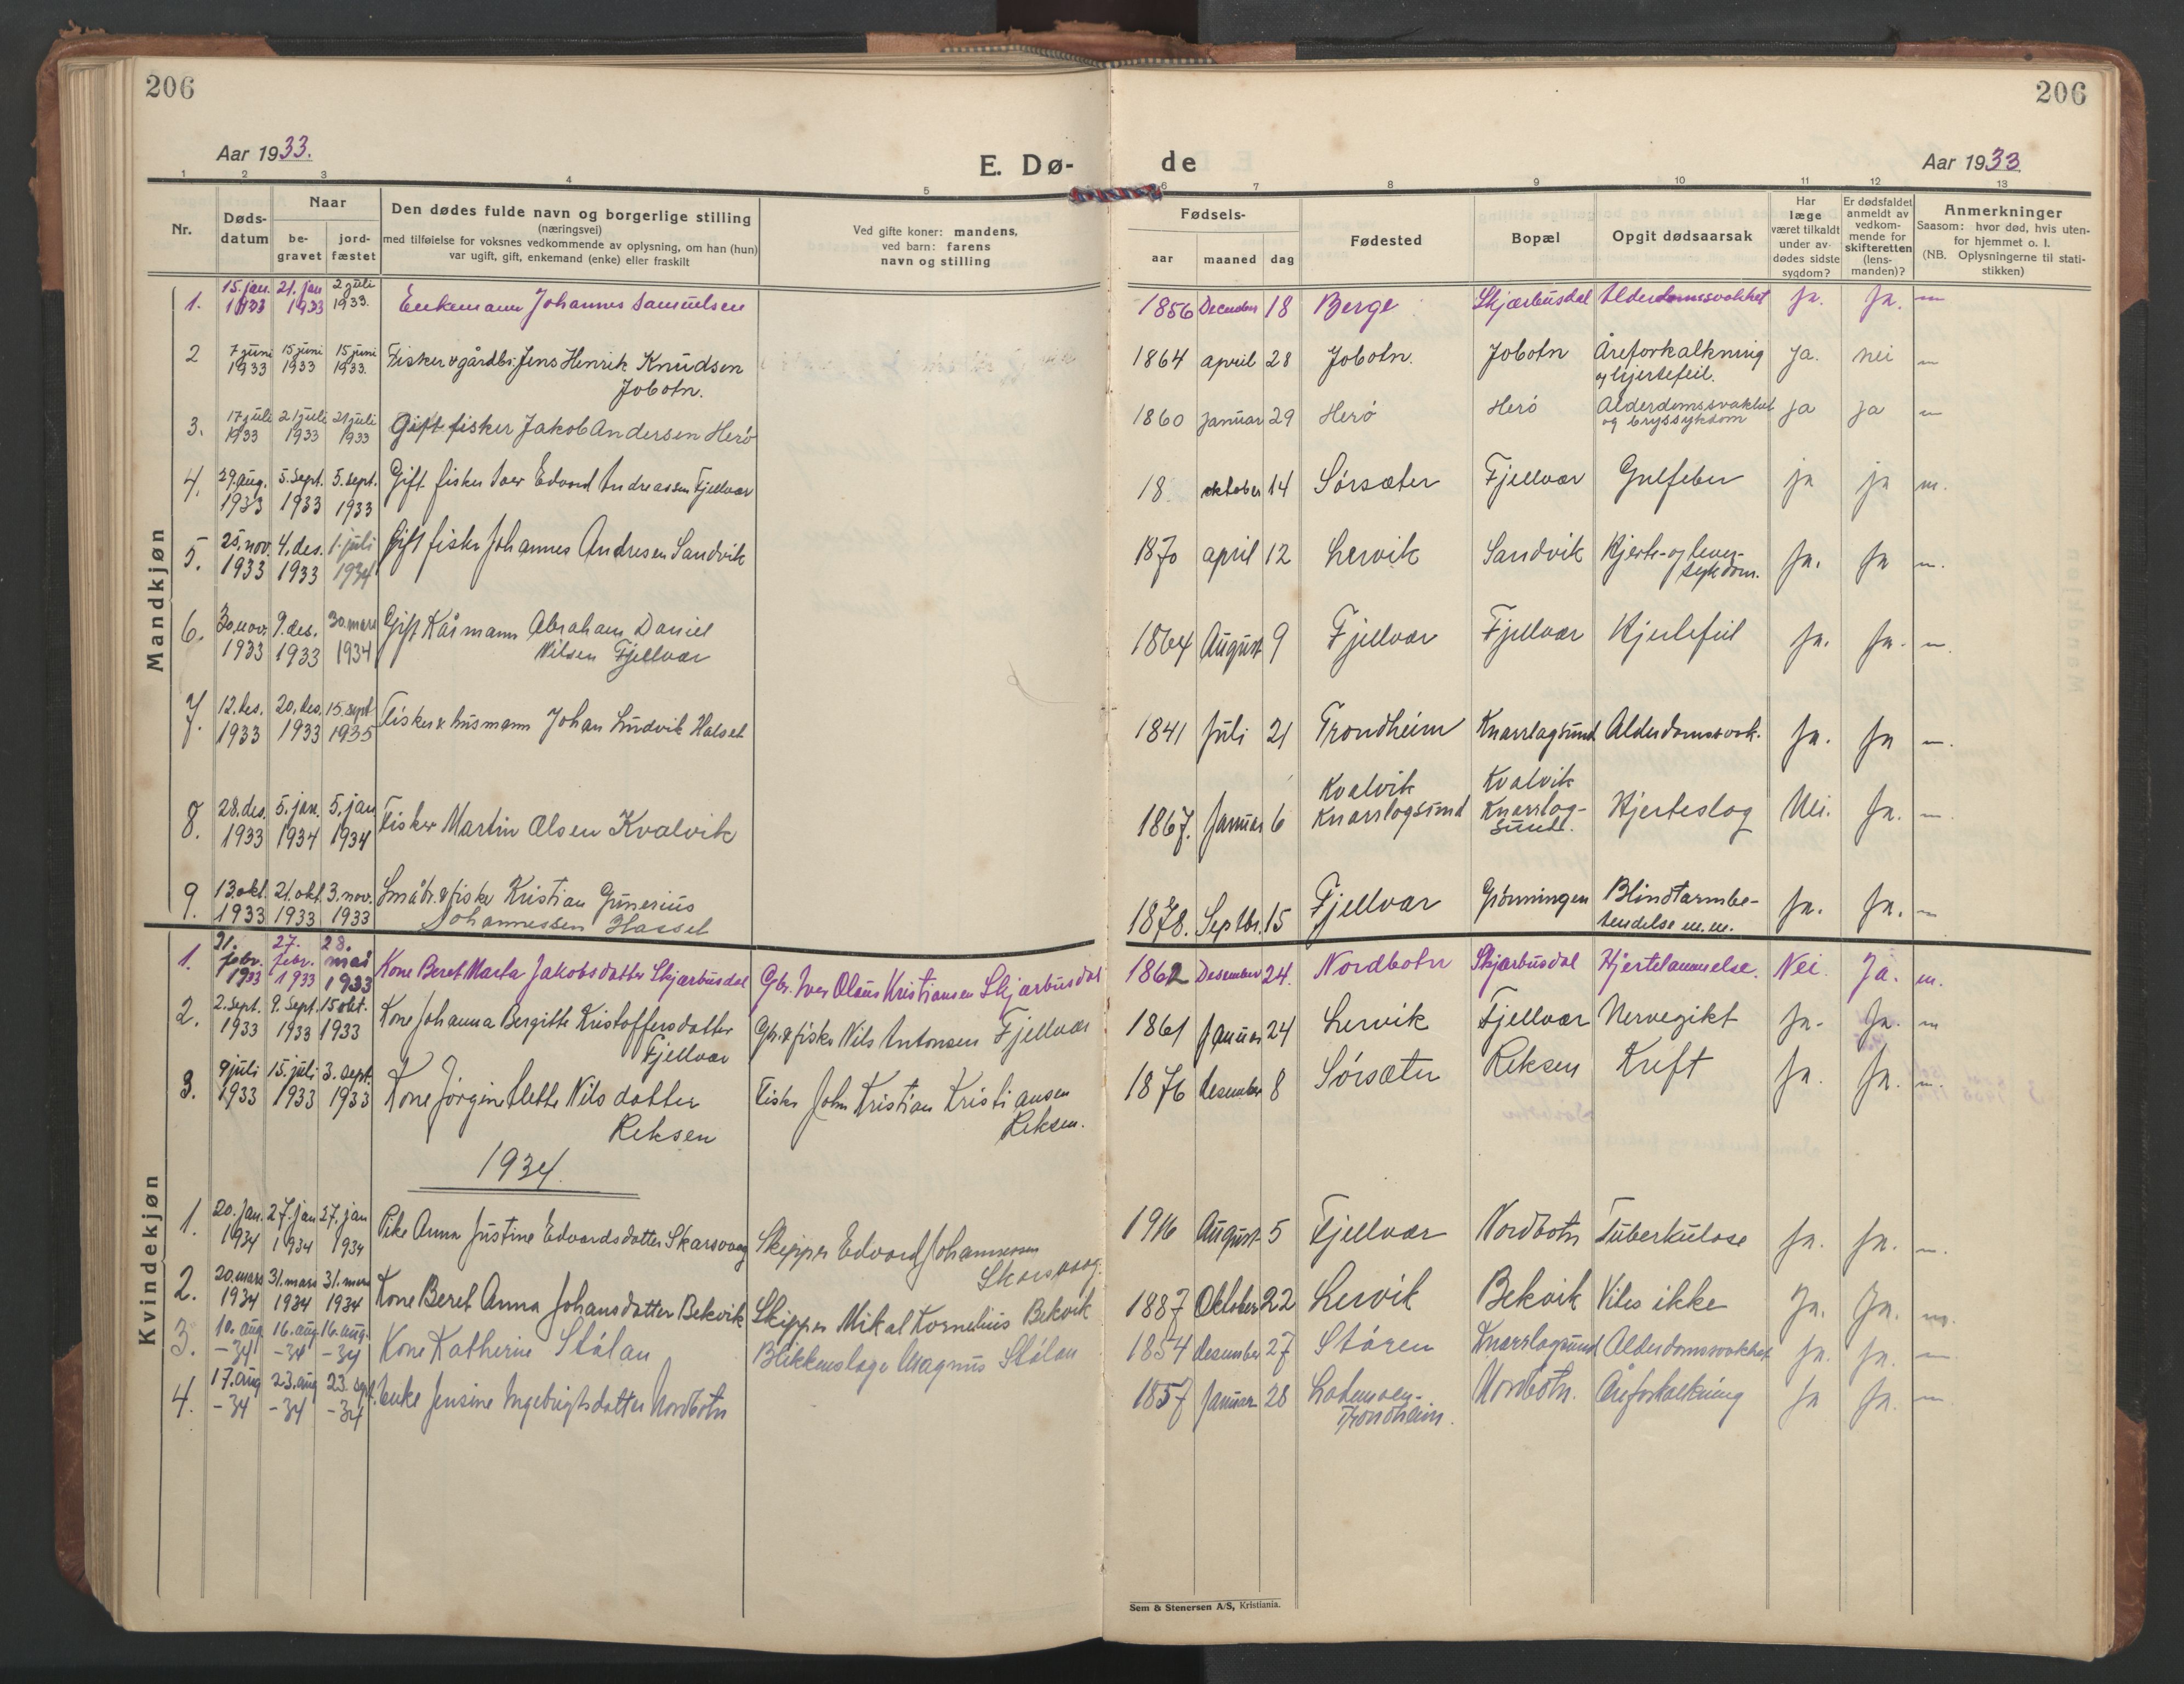 206
206
Aar 1933.
E. Dø-
de
Aar 1933
1 2 3 4 5 6 7 8 9 10 11 12 13
Nr.
Døds-
datum
Naar
be-
gravet
jord-
fæstet
Den dødes fulde navn og borgerlige stilling
(næringsvei)
med tilføielse for voksnes vedkommende av oplysning, om han (hun)
var ugift, gift, enkemand (enke) eller fraskilt
Ved gifte koner: mandens,
ved barn: farens
navn og stilling
Fødsels-
aar maaned dag
Fødested
Bopæl
Opgit dødsaarsak
Har
læge
været tilkaldt
under av-
dødes sidste
sygdom?
Er dødsfaldet
anmeldt av
vedkom-
mende for
skifteretten
(lens-
manden)?
Anmerkninger
Saasom: hvor død, hvis uten-
for hjemmet o. l.
(NB. Oplysningerne til stati-
stikken)
Mandkjøn
1. 15. jan. 1933 21. jan 1933 2 juli 1933. Enkemann Johannes Samuelsen 1856 December 18 Berge Skjærbusdal Alderdomssvakhet Ja. Ja.
2 7 juni 1933 15 juni 1933 15 juni 1933. Fisker & gårdbr. Jens Henrik Knudsen
Jobotn. 1864 april 28 Jobotn. Jobotn Åreforkalkning
og hjertefeil. Ja. nei
3. 17 juli 1933 21 juli 1933 21 juli 1933 Gift fisker Jakob Andersen Herø 1860 januar 29 Herö Herö Alderdomssvakhet
og brystsykdom ja ja
4. 29. aug. 1933 5. sept. 1933 5. sept. 1933 Gift fisker Iver Edvard Andreassen Fjellvær 18 oktober 14 Sörsæter Fjellvær Gulfeber ja ja
5. 25. nov. 1933 4. des. 1933 1. juli 1934 Gift fisker Johannes Andresen Sandvik 1870 april 12 Lervik Sandvik Hjerte- og lever-
sykdom. Ja. Ja
6. 30. nov. 1933 9. des. 1933 30. mars 1934 Gift Kårmann Abraham Daniel
Nilsen Fjellvær 1864 August 9 Fjellvær Fjellvær Hjertefeil Ja. Ja.
7. 12. des. 1933 20. des. 1933 15. sept 1935 Fisker & husmann Johan Ludvik Halset 1841 Juli 21 Trondheim Knarrlagsund Alderdomssvak. Ja. Ja
8. 28. des. 1933 5. jan. 1934 5. jan 1934 Fisker Martin Olsen Kvalvik 1867. Januar 6 Kvalvik
Knarrlagsund Kvalvik
Knarrlag-
sund. Hjerteslag Nei. Ja.
9. 13. okt. 1933 21. okt. 1933 3. nov. 1933 Småbr. & fisker Kristian Gunerius
Johannessen Hassel 1878. Septbr. 15 Fjellvær Grönningen Blindtarmbe-
tendelse m.m. Ja. Ja.
Kvindekjøn
1. 21. febr. 1933 27. febr. 1933 28. mai 1933 Kone Beret Marta Jakobsdatter Skjærbusdal Gbr. Iver Olaus Kristiansen Skjærbusdal 1862 Desember 24. Nordbotn Skjærbusdal Hjertelammelse. Nei. Ja.
2. 2. sept. 1933 9. sept. 1933 15 okt. 1933 Kone Johanna Bergitte Kristoffersdatter
Fjellvær Gbr. & fisker Nils Antonsen Fjellvær 1861 Januar 24 Lervik Fjellvær Nervegikt Ja. Ja.
3. 9 juli 1933 15. juli 1933 3. sept. 1933 Kone Jörgine Mette Nilsdatter
Reksen Fisker John Kristian Kristiansen
Reksen. 1876 desember 8 Sörsæter Reksen Kreft Ja. Ja.
1934.
1. 20. jan. 1934 27. jan 1934 27. jan 1934 Pike Anna Justine Edvardsdatter Skarsvaag Skipper Edvard Johannessen
Skarsvaag. 1916 August 5 Fjellvær Nordbotn Tuberkulose Ja. Ja.
2. 20. mars 1934 31. mars 1934 31. mars 1934 Kone Beret Anna Johansdatter Bekvik Skipper Mikal Kornelius Bekvik 1887 Oktober 22 Lervik Bekvik Vites ikke Ja. Ja.
3. 10. aug -34 16. aug. -34 16. aug. -34 Kone Katherine Stölan Blikkenslager Magnus Stölan 1854 desember 27 Stören Knarrlagsund Alderdomssvakhet Ja. Ja.
4. 17. aug -34 23. aug -34 23. sept. -34 Enke Jensine Ingebrigtsdatter Nordbotn 1857 Januar 28 Lademoen-
Trondheim. Nordbotn. Åreforkalkning Ja Ja.
Sem & Stenersen A/S, Kristiania.